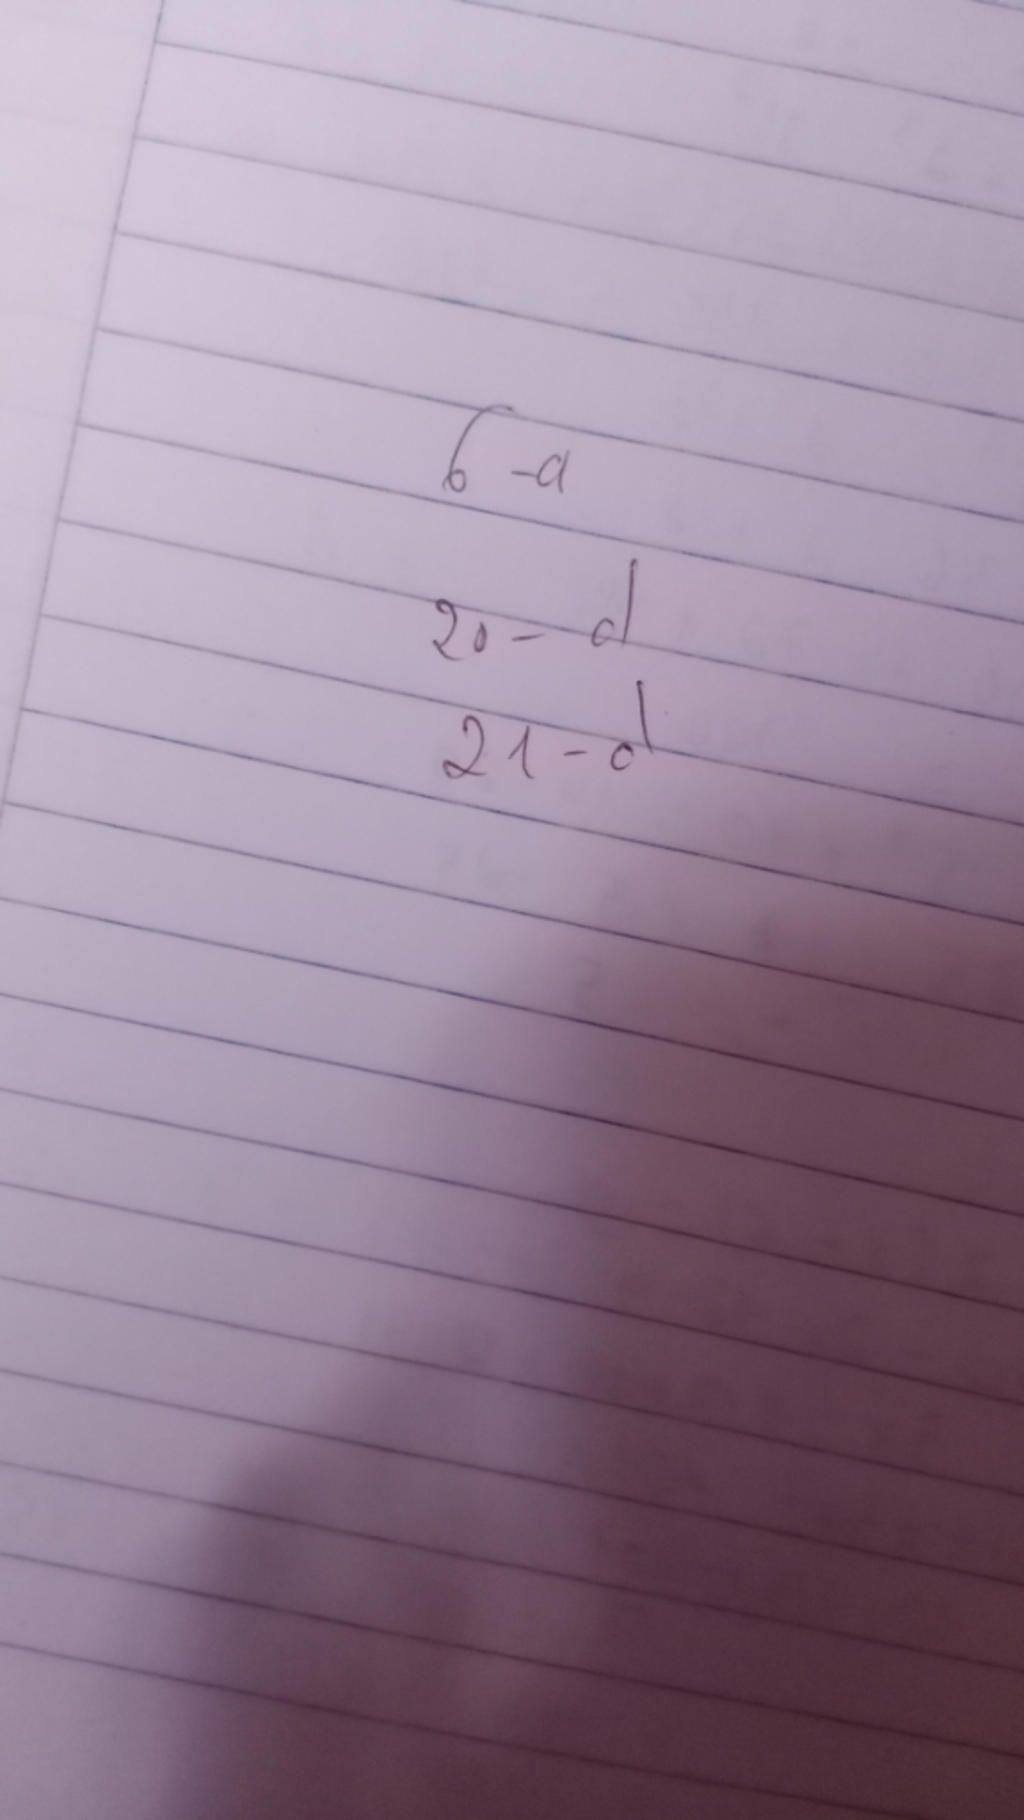 6 -a
20 - d
21 - d